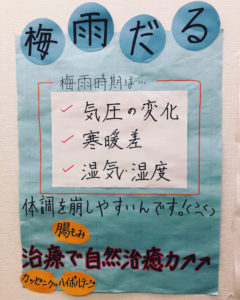 梅雨だる
梅雨時期は…
✓ 気圧の変化
✓ 寒暖差
✓ 湿気・湿度
体調を崩しやすいんです!
腸もみ
治療で自然治癒力↑↑
カッピング ハイボルテージ